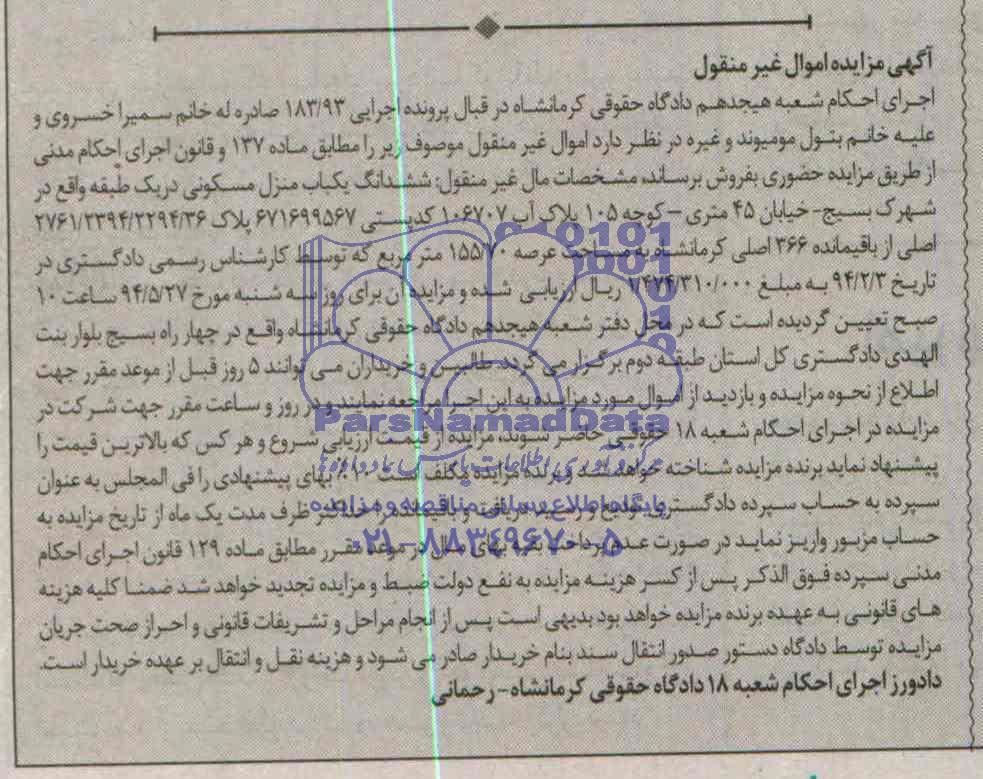 آگهی مزایده اموال غیر منقول
اجرای احکام شعبه هیجدهم دادگاه حقوقی کرمانشاه در قبال پرونده اجرایی ۱۸۳/۹۳ صادره له خانم سمیرا خسروی و
علیه خانم بتول مومیوند و غیره در نظر دارد اموال غیر منقول موصوف زیر را مطابق ماده ۱۳۷ و قانون اجرای احکام مدنی
از طریق مزایده حضوری بفروش برساند، مشخصات مال غیر منقول: ششدانگ یکباب منزل مسکونی در یک طبقه واقع در
شهرک بسیج- خیابان ۴۵ متری – کوچه ۱۰۵ پلاک آب ۱۰۶۷۰۷ کدپستی ۶۷۱۶۹۹۵۶۷ پلاک ۲۷۶۱/۲۳۹۴/۲۲۹۴/۳۶
اصلی از باقیمانده ۳۶۶ اصلی کرمانشاه به مساحت عرصه ۱۵۵/۷۰ متر مربع که توسط کارشناس رسمی دادگستری در
تاریخ ۹۴/۲/۳ به مبلغ ۱/۴۷۴/۳۱۰/۰۰۰ ریال ارزیابی شده و مزایده آن برای روز سه شنبه مورخ ۹۴/۵/۲۷ ساعت ۱۰
صبح تعیین گردیده است که در محل دفتر شعبه هیجدهم دادگاه حقوقی کرمانشاه واقع در چهار راه بسیج بلوار بنت
الهدی دادگستری کل استان طبقه دوم برگزار می گردد. طالبین و خریداران می توانند ۵ روز قبل از موعد مقرر جهت
اطلاع از نحوه مزایده و بازدید از اموال مورد مزایده به این اجرا مراجعه نمایند و در روز و ساعت مقرر جهت شرکت در
مزایده در اجرای احکام شعبه ۱۸ حقوقی حاضر شوند، مزایده از قیمت ارزیابی شروع و هر کس که بالاترین قیمت را
پیشنهاد نماید برنده مزایده شناخته خواهد شد و برنده مزایده مکلف است ۱۰٪ بهای پیشنهادی را فی المجلس به عنوان
سپرده به حساب سپرده دادگستری تودیع و رسید دریافت و مابقی را حداکثر ظرف مدت یک ماه از تاریخ مزایده به
حساب مزبور واریز نماید در صورت عدم پرداخت بقیه بهای مال در موعد مقرر مطابق ماده ۱۲۹ قانون اجرای احکام
مدنی سپرده فوق الذکر پس از کسر هزینه مزایده به نفع دولت ضبط و مزایده تجدید خواهد شد ضمنا کلیه هزینه
های قانونی به عهده برنده مزایده خواهد بود بدیهی است پس از انجام مراحل و تشریفات قانونی و احراز صحت جریان
مزایده توسط دادگاه دستور صدور انتقال سند بنام خریدار صادر می شود و هزینه نقل و انتقال بر عهده خریدار است.
دادورز اجرای احکام شعبه ۱۸ دادگاه حقوقی کرمانشاه- رحمانی
ParsNamadData
پایگاه اطلاع رسانی مناقصه و مزایده
۰۲۱-۸۸۳۴۹۶۷۰-۵